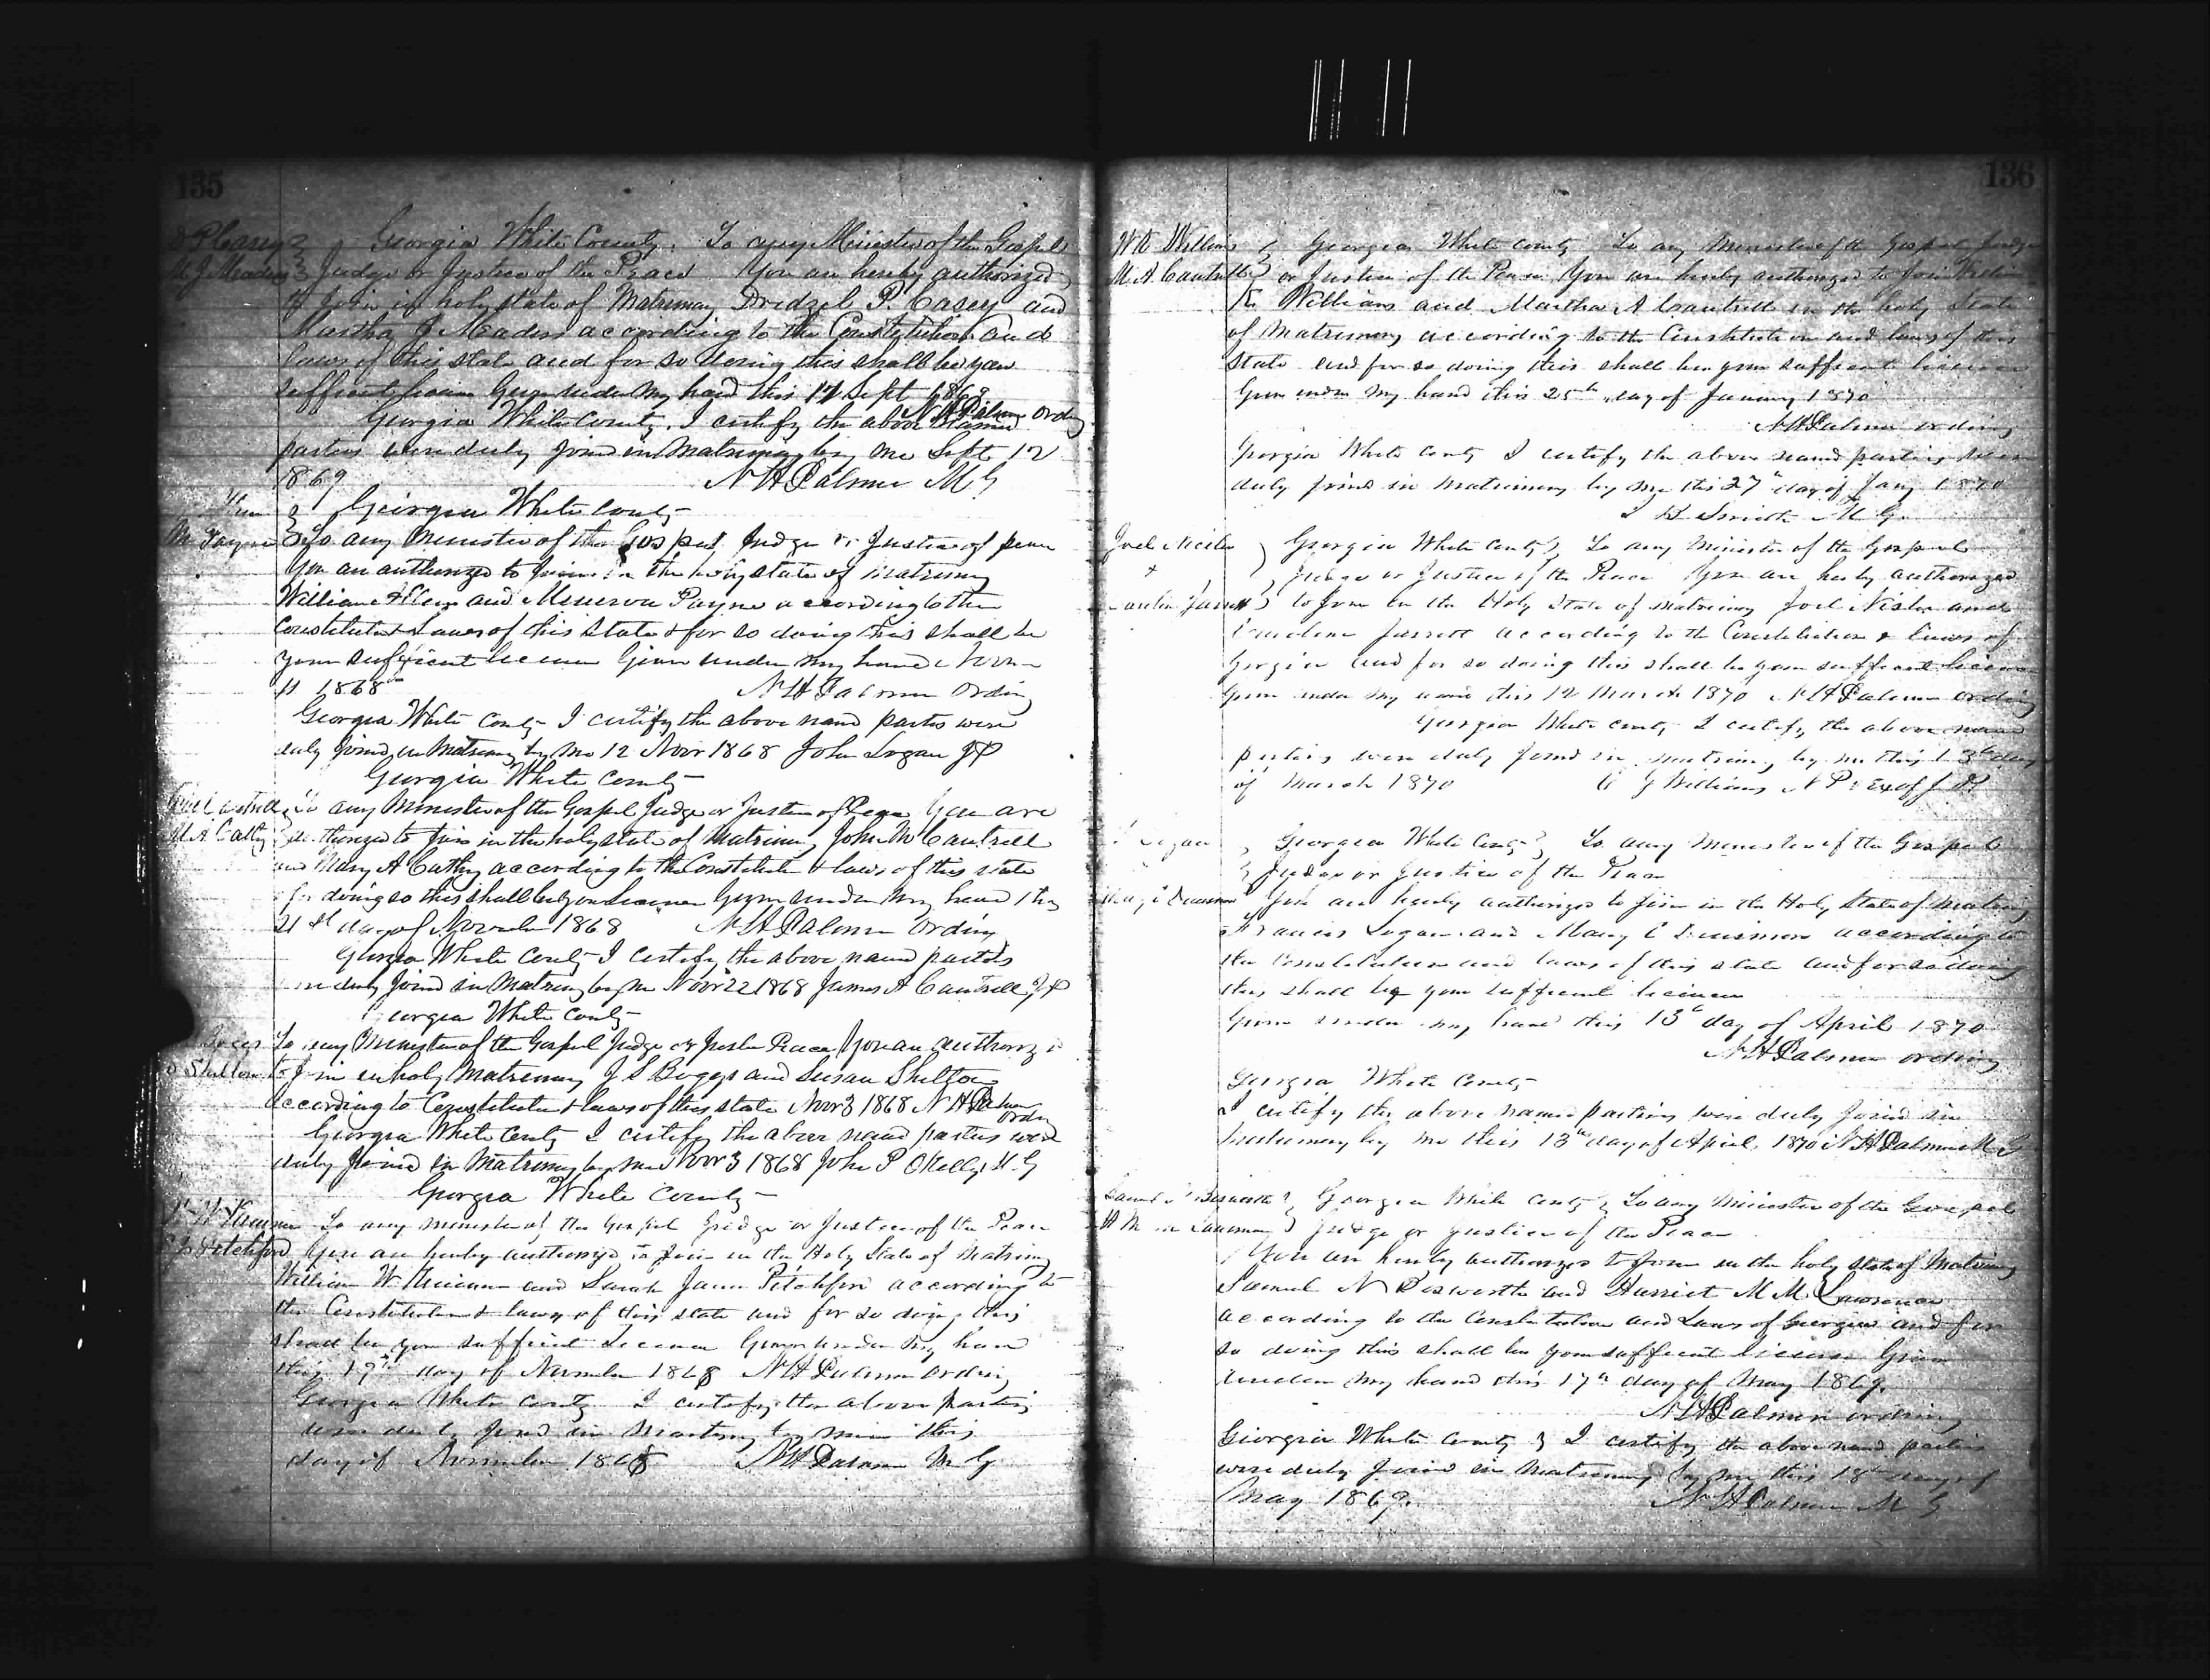 135
D P Casey
M J Meaders
Georgia White County. To any Minister of the Gospel
Judge or Justice of the Peace You are hereby authorized
to join in holy state of Matrimony Dridzel P. Casey and
Martha J Meaders according to the Constitution and
laws of this state and for so doing this shall be your
sufficient license Given under my hand this 12 Sept 1869
N H Palmer Ordiny
Georgia White County. I certify the above named
parties were duly joined in Matrimony by me Sept 12
1869 N H Palmer M G
M Payne
Georgia White County
To any Minister of the Gospel, Judge or Justice of peace
you are authorized to join in the holy state of Matrimony
William and Minerva Payne according to the
Constitution & Laws of this State & for so doing this shall be
your sufficient license Given under my hand Nov
11 1868 N H Palmer Ordiny
Georgia White County I certify the above named parties were
duly joined in Matrimony by me 12 Novr 1868 John Logan J P
Georgia White County
M A Cathy
To any Minister of the Gospel Judge or Justice of Peace You are
authorized to join in the holy state of Matrimony John M Cantrell
and Mary A Cathy according to the Constitution & laws of this state
for doing so this shall be your license Given under my hand this
21st day of November 1868 N H Palmer Ordiny
Georgia White County I certify the above named parties
were duly joined in Matrimony by me Novr 22 1868 James A Cantrell J P
Georgia White County
Shelton
To any Minister of the Gospel Judge or Justice Peace You are authorized
to join in holy Matrimony J S Boggs and Susan Shelton
according to Constitution & laws of this state Nov 3 1868 N H Palmer
Ordiny
Georgia White County I certify the above named parties were
duly joined in Matrimony by me Novr 3 1868 John P OKelly M G
Georgia White County
S J Pitchford
To any minister of the Gospel Judge or Justice of the Peace
You are hereby authorized to join in the Holy State of Matrimony
William W and Sarah Jane Pitchford according to
the Constitution & laws of this state and for so doing this
shall be your sufficient License Given under my hand
this 19th day of November 1868 N H Palmer Ordiny
Georgia White County I certify the above parties
were duly joined in Matrimony by me this
day of November 1868 N H Palmer M G
136
W K Williams
M A Cantrell
Georgia White County To any Minister of the Gospel Judge
or Justice of the Peace You are hereby authorized to join William
K Williams and Martha A Cantrell in the holy State
of Matrimony according to the Constitution and laws of this
State and for so doing this shall be your sufficient license
Given under my hand this 25th day of January 1870
N H Palmer ordiny
Georgia White County I certify the above named parties were
duly joined in Matrimony by me this 27th day of Jany 1870
Smith M G
Joel Nicely
+
Jarrett
Georgia White County To any Minister of the Gospel
Judge or Justice of the Peace You are hereby authorized
to join in the Holy State of Matrimony Joel and
Jarrett according to the Constitution & laws of
Georgia and for so doing this shall be your sufficient license
Given under my hand this 12 March 1870 N H Palmer ordiny
Georgia White County I certify the above named
parties were duly joined in matrimony by me this 13th day
of March 1870 J Williams N P & Exoff J P
Logan
Georgia White County To any Minister of the Gospel
Judge or Justice of the Peace
You are hereby authorized to join in the Holy State of Matrimony
Francis Logan and Mary C according to
the Constitution and laws of this state and for so doing
this shall be your sufficient license
Given under my hand this 13th day of April 1870
N H Palmer ordiny
Georgia White County
I certify the above named parties were duly joined in
Matrimony by me this 13th day of April, 1870 N H Palmer M G
Samuel N Bosworth
H M M Lawrence
Georgia White County To any Minister of the Gospel
Judge or Justice of the Peace
You are hereby authorized to join in the holy state of Matrimony
Samuel N Bosworth and Harriet M M Lawrence
according to the Constitution and Laws of Georgia and for
so doing this shall be your sufficient license Given
under my hand this 17th day of May 1869.
N H Palmer ordiny
Georgia White County I certify the above named parties
were duly joined in Matrimony by me this 18th day of
May 1869. N H Palmer M G